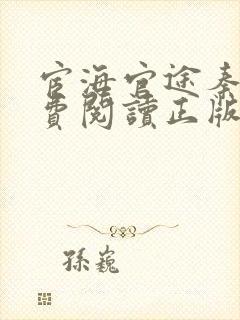 宦海官途秦
費閱讀正版
孫巍